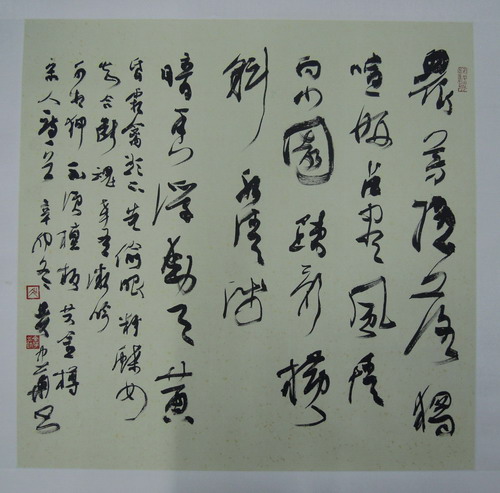 眾芳搖落獨
暄妍占盡風情
向小園疏影橫
斜水清淺
暗香浮動月黃
昏霜禽欲下先偷眼粉蝶如
知合斷魂幸有微吟
可相狎不須檀板共金樽
宋人詩一首辛卯冬